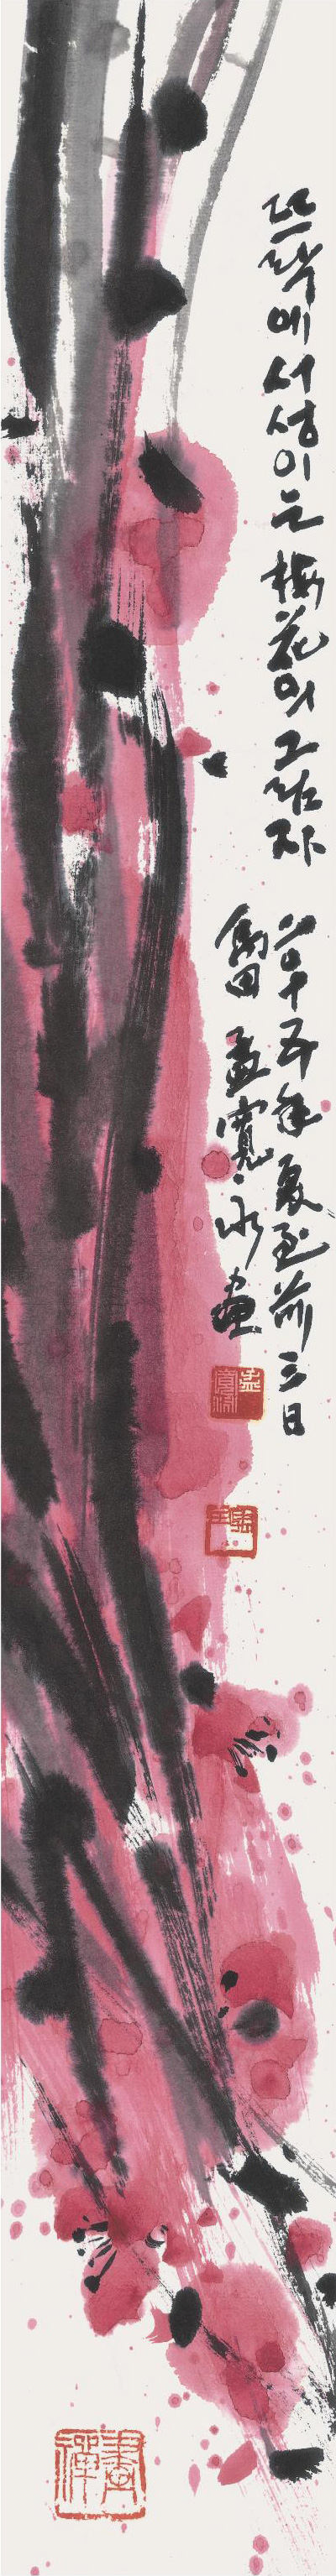 뜨락에 서성이는 梅花의 그림자
二〇十五年 夏至 前三日
田 孟寬永 畫
畫禪